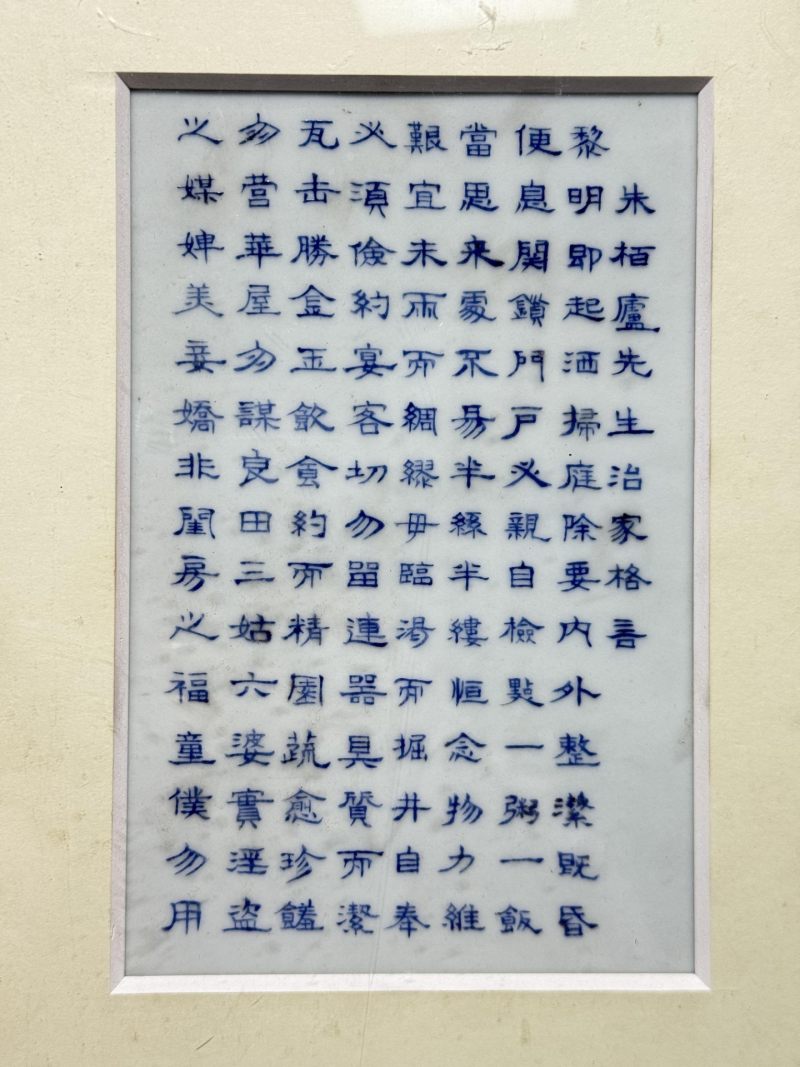 朱栢廬先生治家格言
黎明即起洒掃庭除要内外整潔既昏
便息関鎖門戶必親自檢點一粥一飯
當思来處不易半絲半縷恒念物力維
艱宜未雨而綢繆毋臨渴而掘井自奉
必須儉約宴客切勿留連器具質而潔
瓦缶勝金玉飲食約而精園蔬愈珍饈
勿营華屋勿謀良田三姑六婆實淫盗
之媒婢美妾嬌非閨房之福童僕勿用